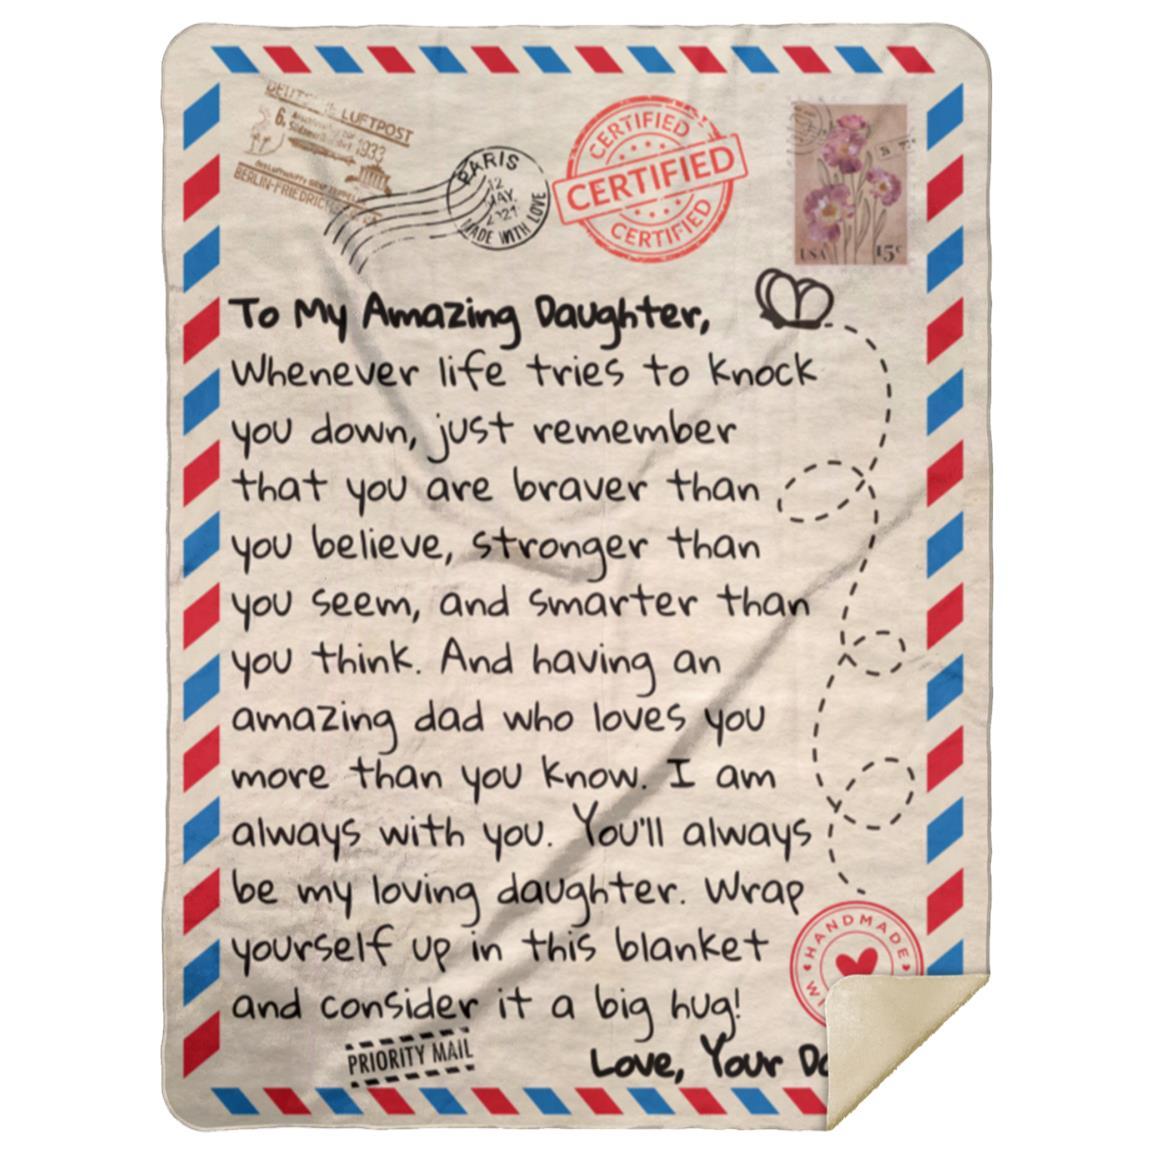 DEUTSCHE LUFTPOST
6.
1933
BERLIN-FRIEDRICH
PARIS
12
MAY.
2021
MADE WITH LOVE
CERTIFIED
CERTIFIED
CERTIFIED
USA 15c
To My Amazing Daughter,
Whenever life tries to knock
you down, just remember
that you are braver than
you believe, stronger than
you seem, and smarter than
you think. And having an
amazing dad who loves you
more than you know. I am
always with you. You'll always
be my loving daughter. Wrap
yourself up in this blanket
and consider it a big hug!
HANDMADE
PRIORITY MAIL
Love, Your